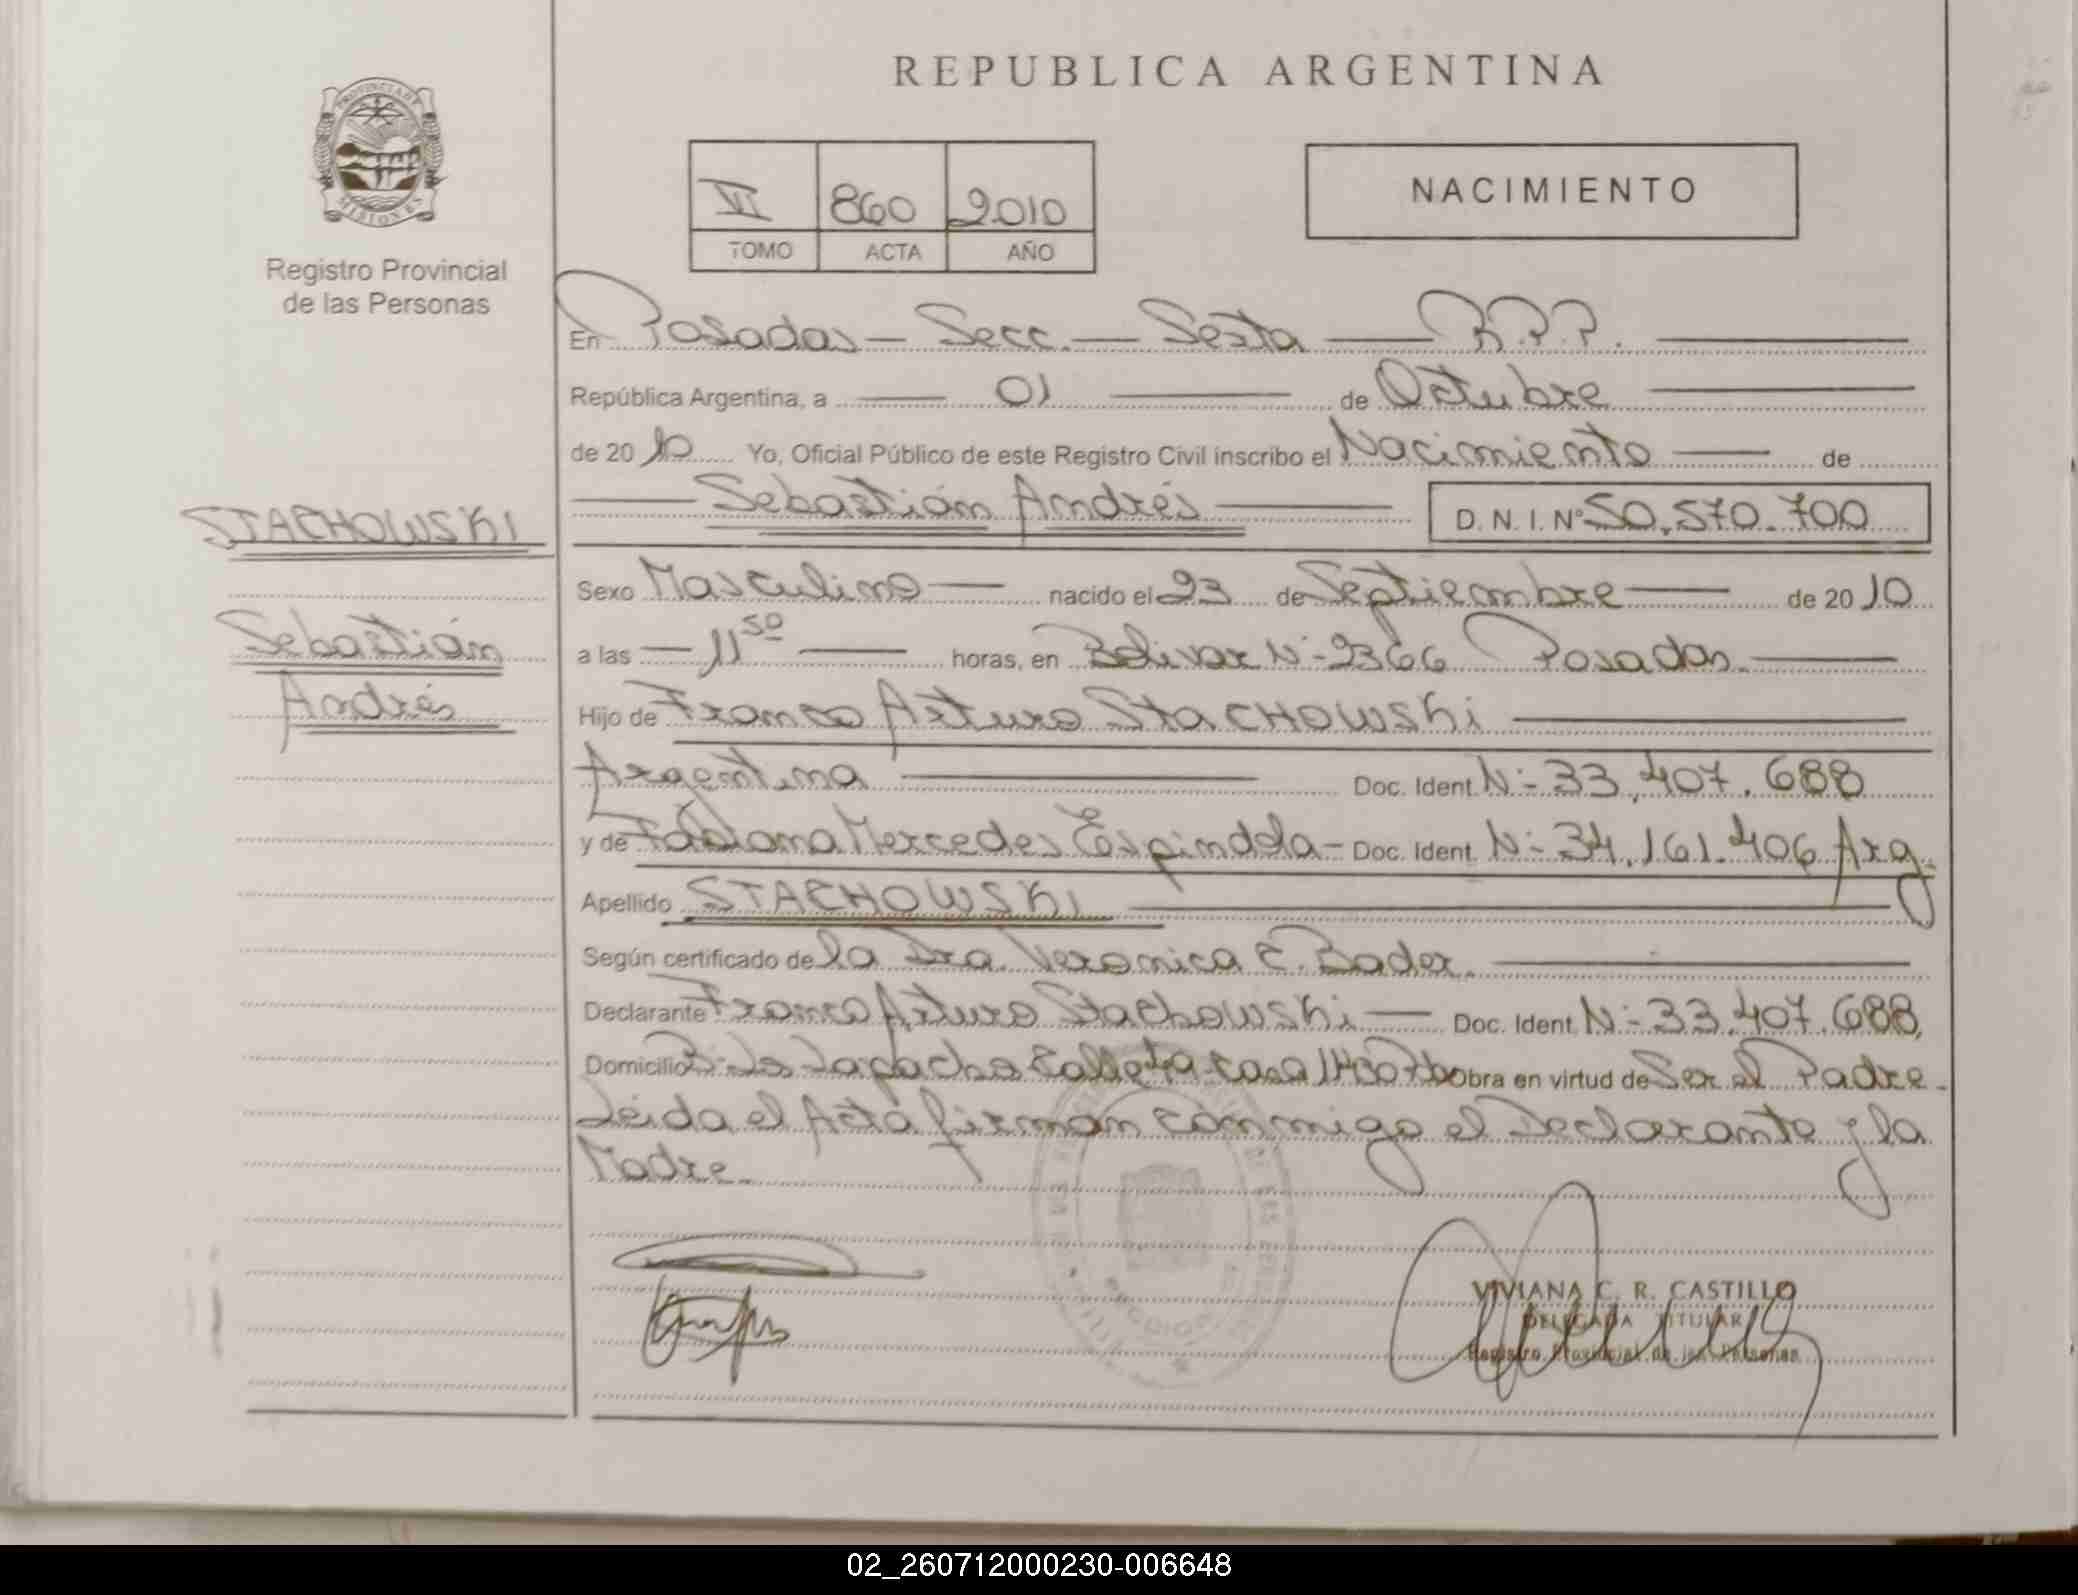 REPUBLICA ARGENTINA
PROVINCIA DE MISIONES
Registro Provincial
de las Personas
VI 860 2010
TOMO ACTA AÑO
NACIMIENTO
En Posadas - Secc. - Sexta - R.P.P.
República Argentina, a 01 de Octubre
de 2010 Yo, Oficial Público de este Registro Civil inscribo el Nacimiento de
Sebastián Andrés D. N. I. Nº 50.570.700
STACHOWSKI
Sebastián
Andrés
Sexo Masculino nacido el 23 de Septiembre de 2010
a las 11 50 horas, en Bolivar Nº 2366 Posadas
Hijo de Franco Arturo StaCHOWSKi
Argentina Doc. Ident. Nº 33.407.688
y de Fabiana Mercedes Espindola - Doc. Ident. Nº 34.161.406 Arg.
Apellido STACHOWSKI
Según certificado de la Dra. Veronica E. Bader.
Declarante Franco Arturo Stachowski Doc. Ident. Nº 33.407.688
Domicilio Bº Lapacho Calle casa Obra en virtud de Ser el Padre.
Leida el Acta firman conmigo el Declarante y la
Madre.
VIVIANA C. R. CASTILLO
DELEGADA TITULAR
Registro Provincial de las Personas
02_260712000230-006648